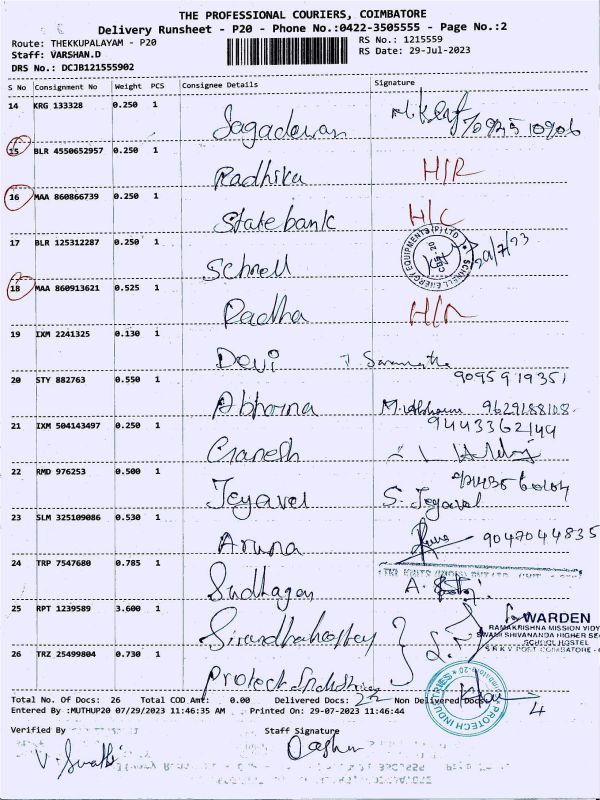 THE PROFESSIONAL COURIERS, COIMBATORE
Delivery Runsheet - P20 - Phone No.:0422-3505555 - Page No.:2
Route: THEKKUPALAYAM - P20
RS No.: 1215559
Staff: VARSHAN.D
RS Date: 29-Jul-2023
DRS No.: DCJB121555902
S No Consignment No Weight PCS Consignee Details Signature
14 KRG 133328 0.250 1 Jagadevan
15 BLR 4550652957 0.250 1 Radhika H/R
16 MAA 860866739 0.250 1 State bank H/C
17 BLR 125312287 0.250 1 Schnell 29/7/23
SCHNELL ENERGY EQUIPMENTS (P) LTD
18 MAA 860913621 0.525 1 Radha
19 IXM 2241325 0.130 1 Devi
9095919351
20 STY 882763 0.550 1 Abharna 9629188108
9443362144
21 IXM 504143497 0.250 1 Ganesh
22 RMD 976253 0.500 1 Jeyavel S. Jeyavel
23 SLM 325109086 0.530 1 Aruna 9047044835
24 TRP 7547680 0.785 1 A.
25 RPT 1239589 3.600 1
WARDEN
RAMAKRISHNA MISSION VIDY
SWAMI SHIVANANDA HIGHER SEC
SCHOOL HOSTEL
S R K V POST COIMBATORE -
26 TRZ 25499804 0.730 1 Protech Industries
PROTECH INDUSTRIES
Total No. Of Docs: 26 Total COD Amt: 0.00 Delivered Docs: 22 Non Delivered Docs: 4
Entered By :MUTHUP20 07/29/2023 11:46:35 AM Printed On: 29-07-2023 11:46:44
Verified By Staff Signature